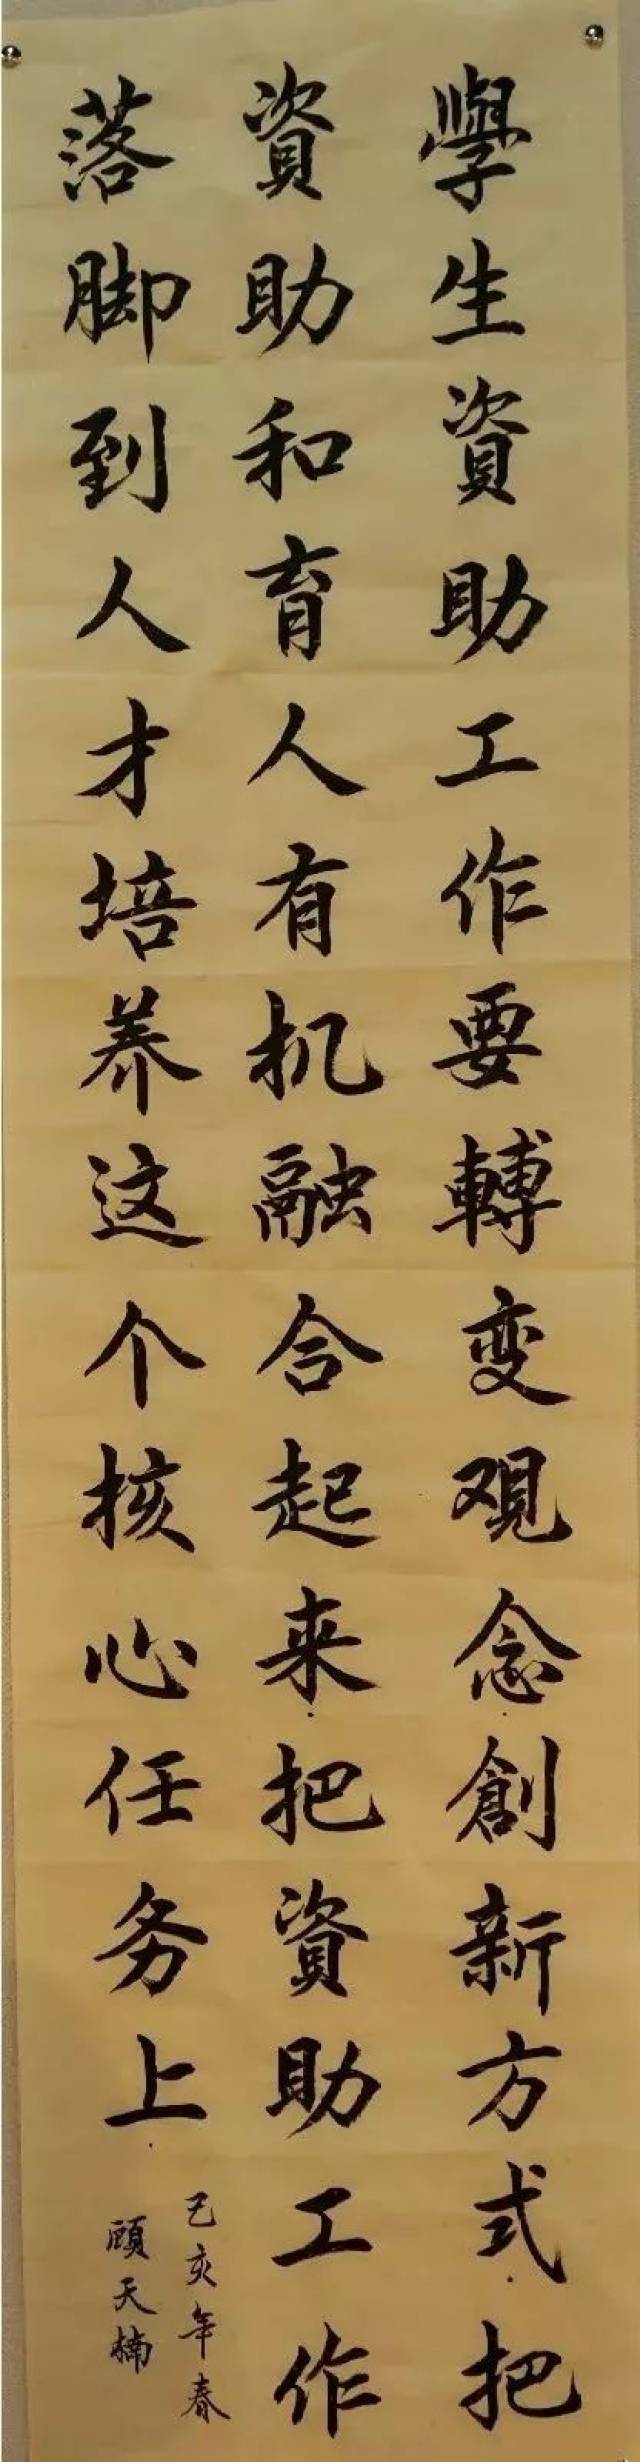 學生資助工作要轉变观念創新方式.把
資助和育人有机融合起来.把資助工作
落脚到人才培养这个核心任务上.
己亥年春
顾天楠